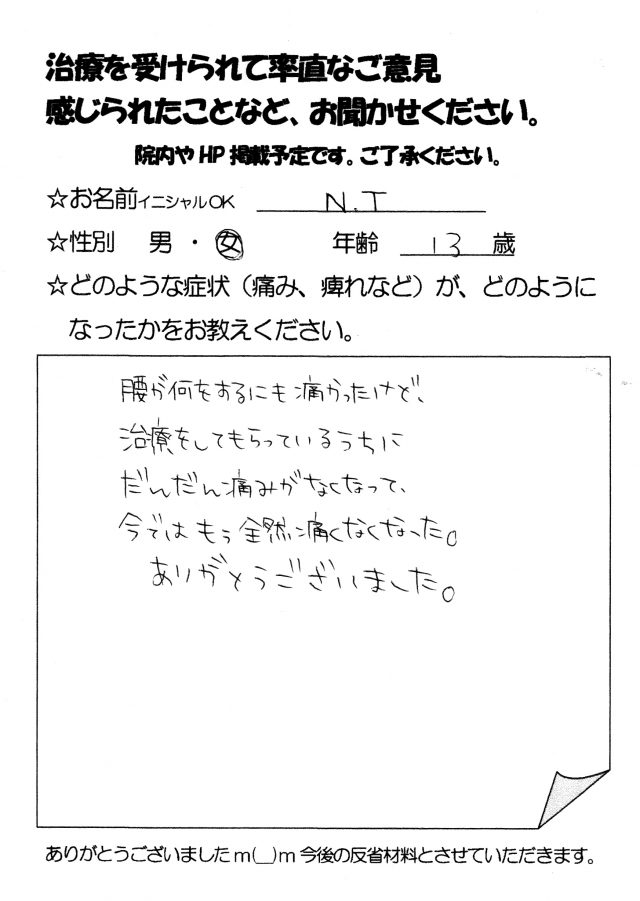 治療を受けられて率直なご意見
感じられたことなど、お聞かせください。
院内やHP掲載予定です。ご了承ください。
☆お名前イニシャルOK N.T
☆性別 男・女 年齢 13 歳
☆どのような症状（痛み、痺れなど）が、どのように
なったかをお教えください。
腰が何をするにも痛かったけど、
治療をしてもらっているうちに
だんだん痛みがなくなって、
今ではもう全然痛くなくなった。
ありがとうございました。
ありがとうございましたm(__)m今後の反省材料とさせていただきます。